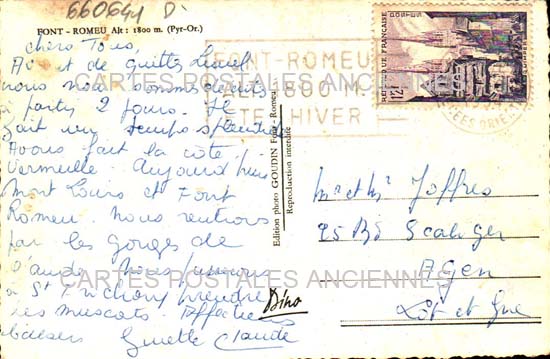 660641 D
FONT-ROMEU Alt : 1800 m. (Pyr-Or.)
Chers Tous,
Avant de quitter Limel
nous nous sommes décidés
à partir 2 jours. Il
fait un temps splendide
Avons fait la côte
Vermeille Aujourd'hui
Mont Louis et Font
Romeu. Nous rentrons
par les gorges de
l'Aude. Nous pensons
à St prendre
les muscats. Affectueux
baisers Ginette Claude
Edition photo GOUDIN Font-Romeu
Reproduction interdite
Dino
FONT-ROMEU
ALT. 1800 M
ETE-HIVER
REPUBLIQUE FRANÇAISE
POSTES
12F
Mr et Mme Joffres
25 Bd Scaliger
Agen
Lot et Gne
CARTES POSTALES ANCIENNES
CARTES POSTALES ANCIENNES